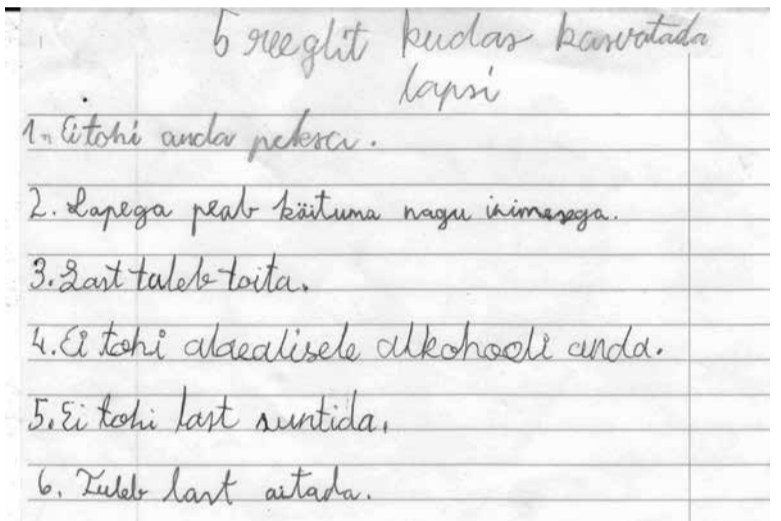 5 reeglit kudas kasvatada
lapsi
1. Ei tohi anda peksa.
2. Lapega peab käituma nagu inimesega.
3. Last tuleb toita.
4. Ei tohi alaealisele alkohooli anda.
5. Ei tohi last suntida.
6. Tuleb last aitada.